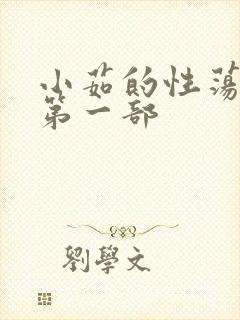 小茹的性荡
第一部
劉學文